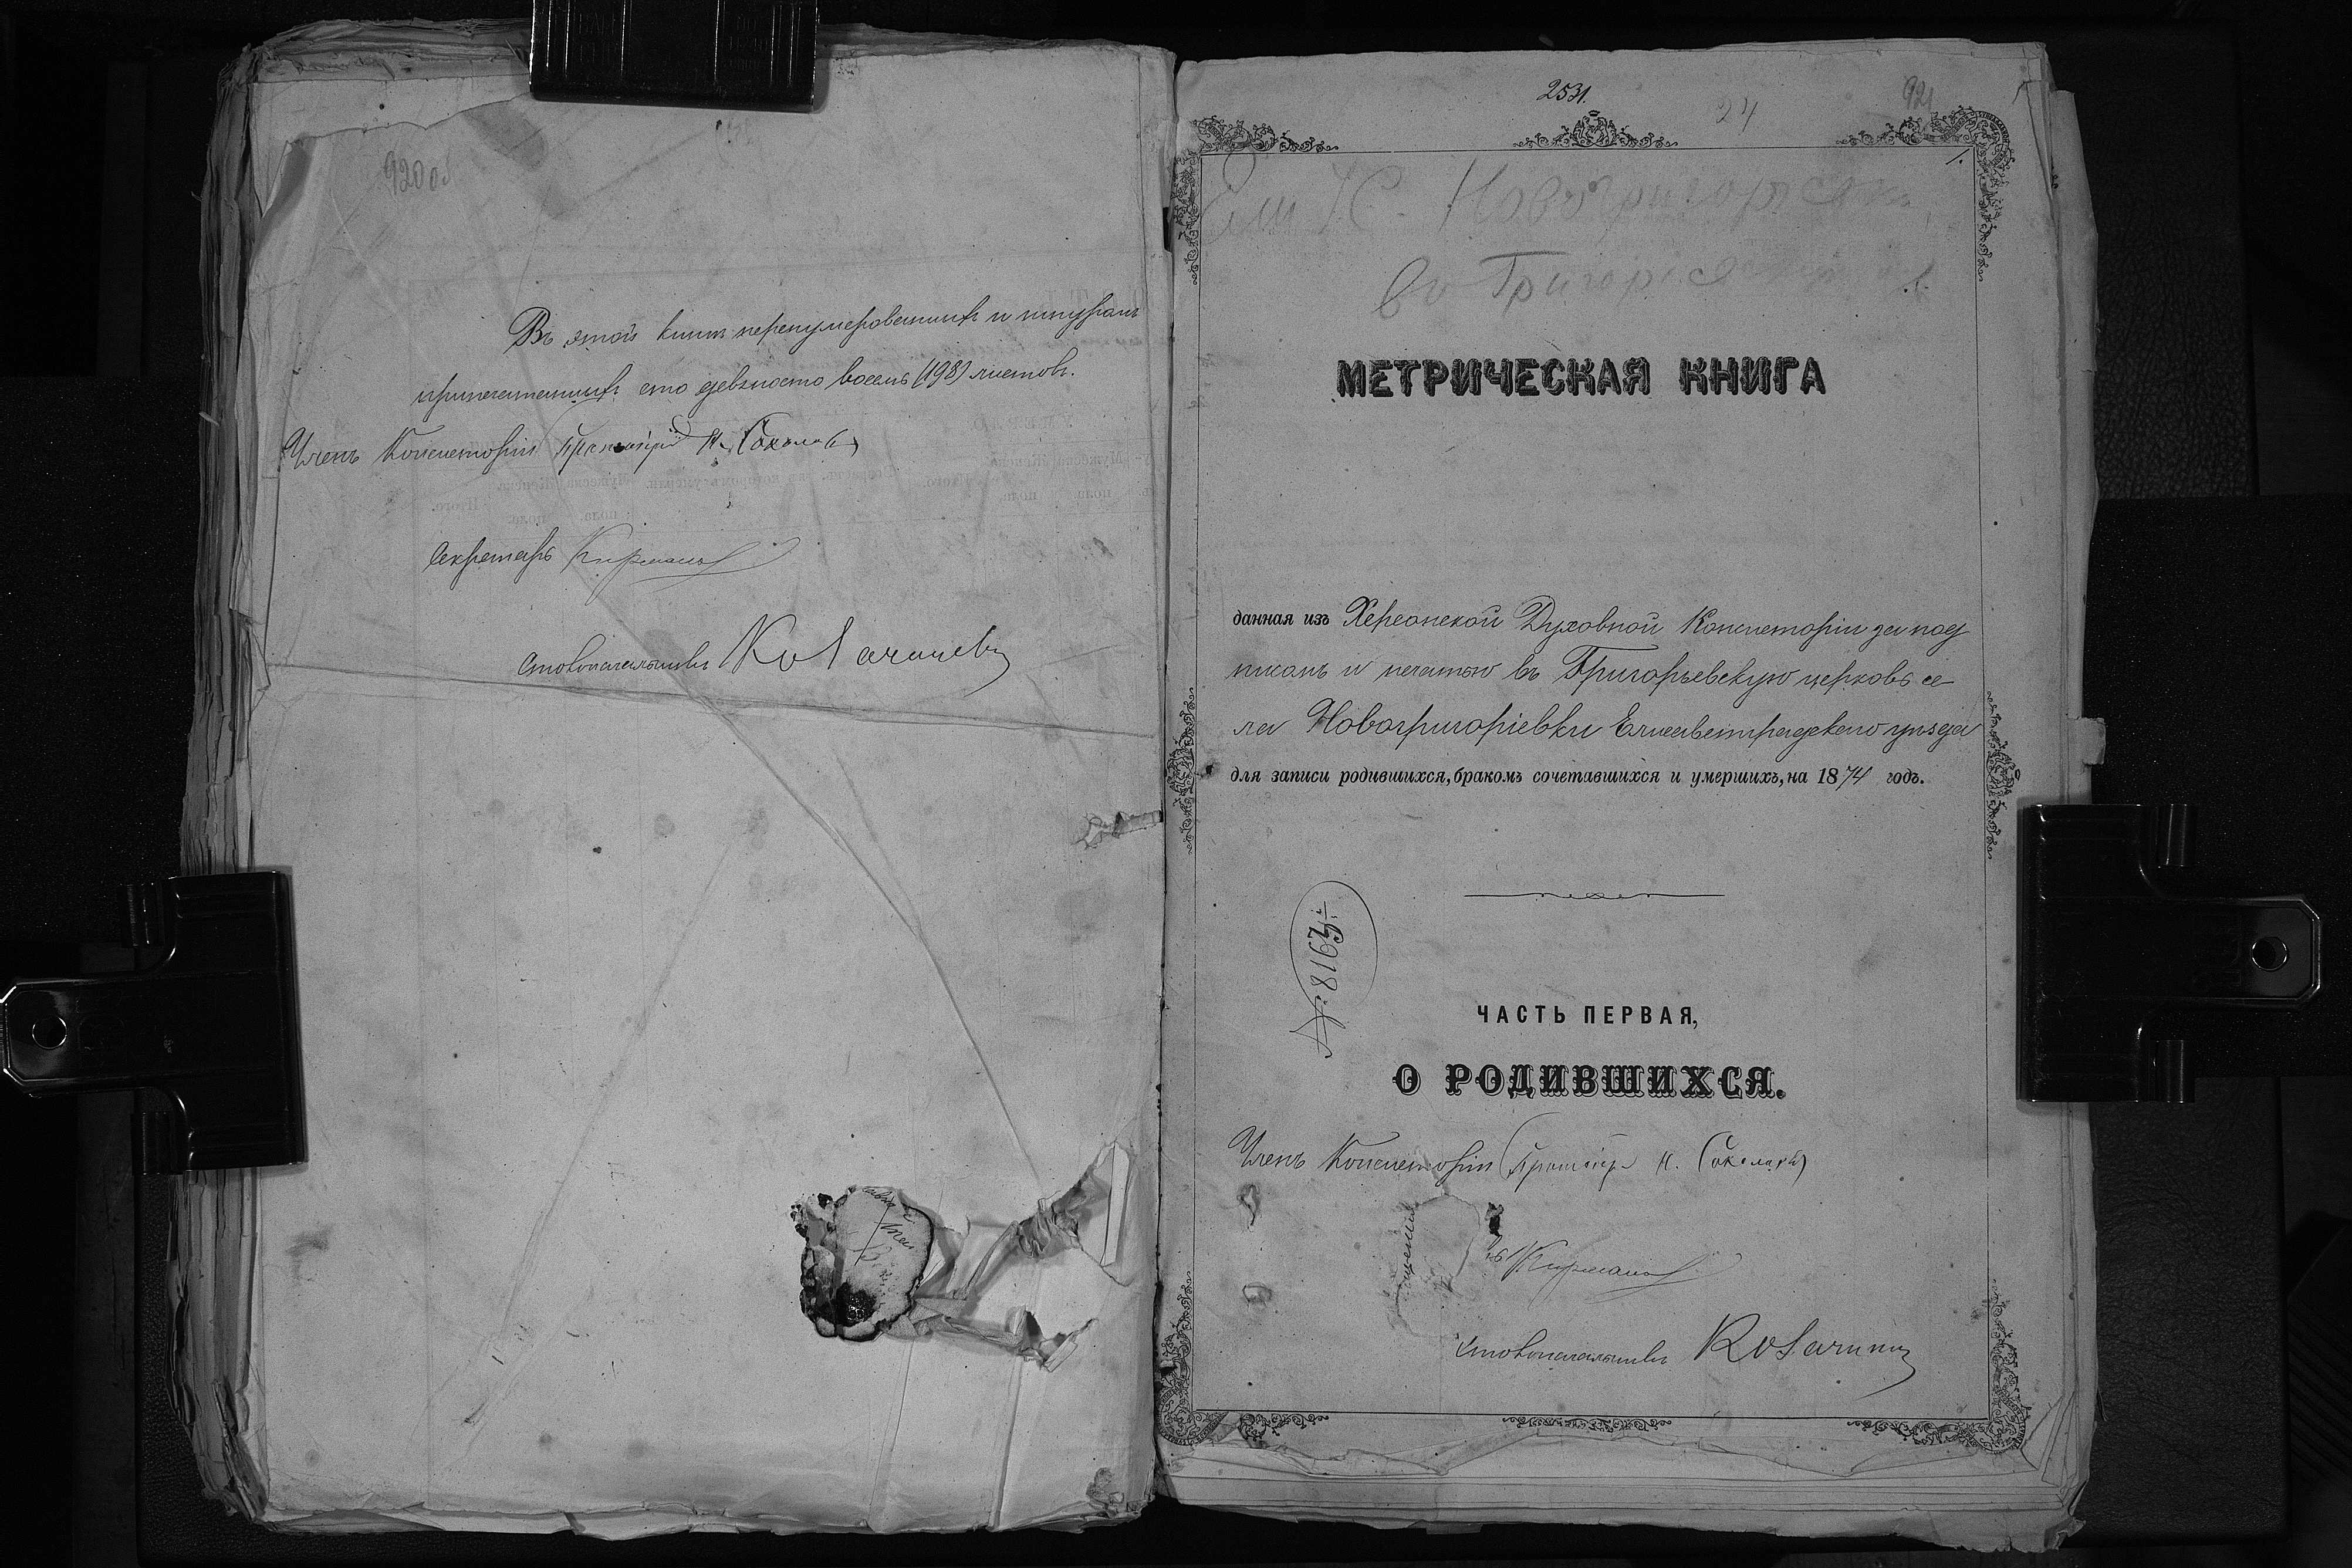 920 об
Въ этой книгѣ перенумерованныхъ и шнуромъ
припечатанныхъ сто девяносто восемь (198) листовъ.
Членъ Консисторіи Протоіерей Н. Соколовъ
Секретарь
Столоначальникъ
2531.
24
921
1.
Ели К. Новогригорьевк
въ Григорьевск
МЕТРИЧЕСКАЯ КНИГА
данная изъ Херсонской Духовной Консисторіи за под
писью и печатью въ Григорьевскую церковь се
ла Новогригоріевки Елисаветградскаго уѣзда
для записи родившихся, бракомъ сочетавшихся и умершихъ, на 1874 годъ.
№ 8163
ЧАСТЬ ПЕРВАЯ,
О РОДИВШИХСЯ.
Членъ Консисторіи Протоіерей Н. Соколовъ
Столоначальникъ